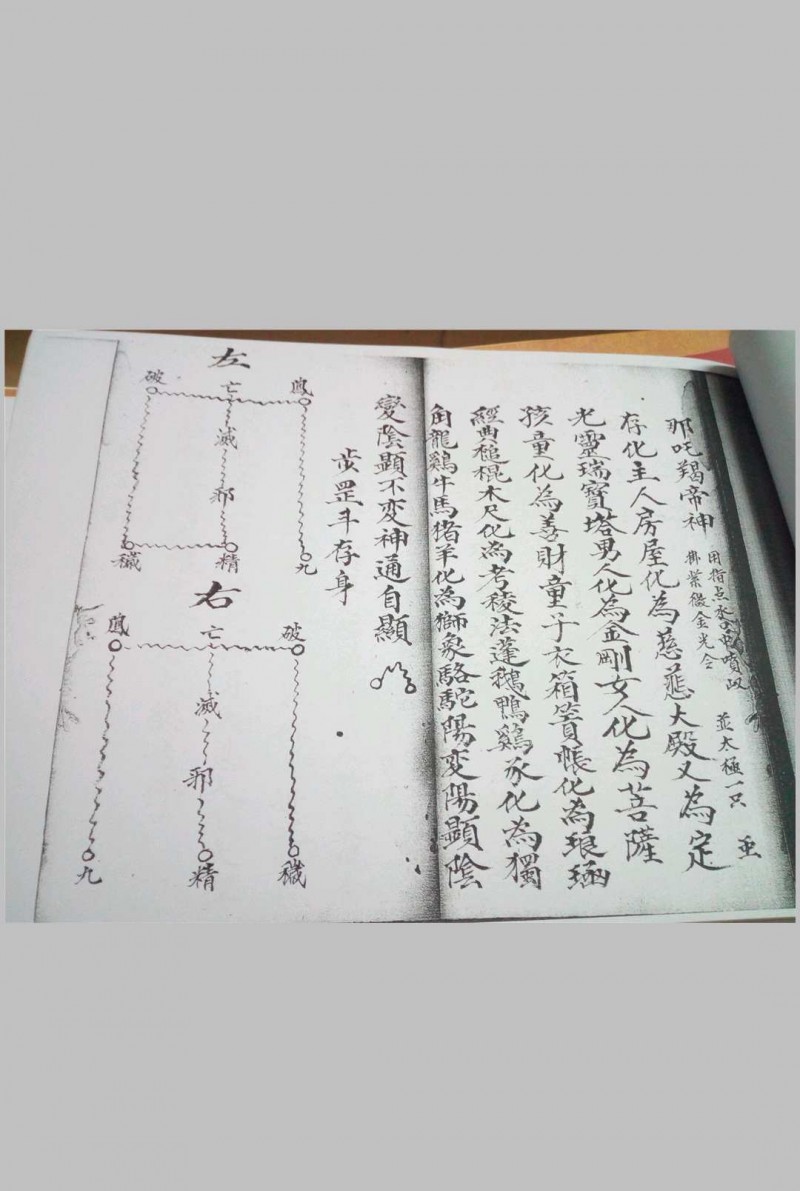 那吒羯帝神
用指点水
噴
佛紫微金光会
並太極一只
存化主人房屋化為慈悲大殿又為定
光靈瑞寶塔男人化為金剛女人化為菩薩
孩童化為善財童子衣箱簀帳化為琅函
經典槌棍木尺化為考稜法蓬鵝鴨鷄豕化為獨
角龍鷄牛馬猪羊化為獅象駱駝陽变陽顯陰
變陰顯不变神通自顯
步罡斗存身
左
破 亡 鳳
滅
邪
穢 精 九
右
鳳 亡 破
滅
邪
九 精 穢